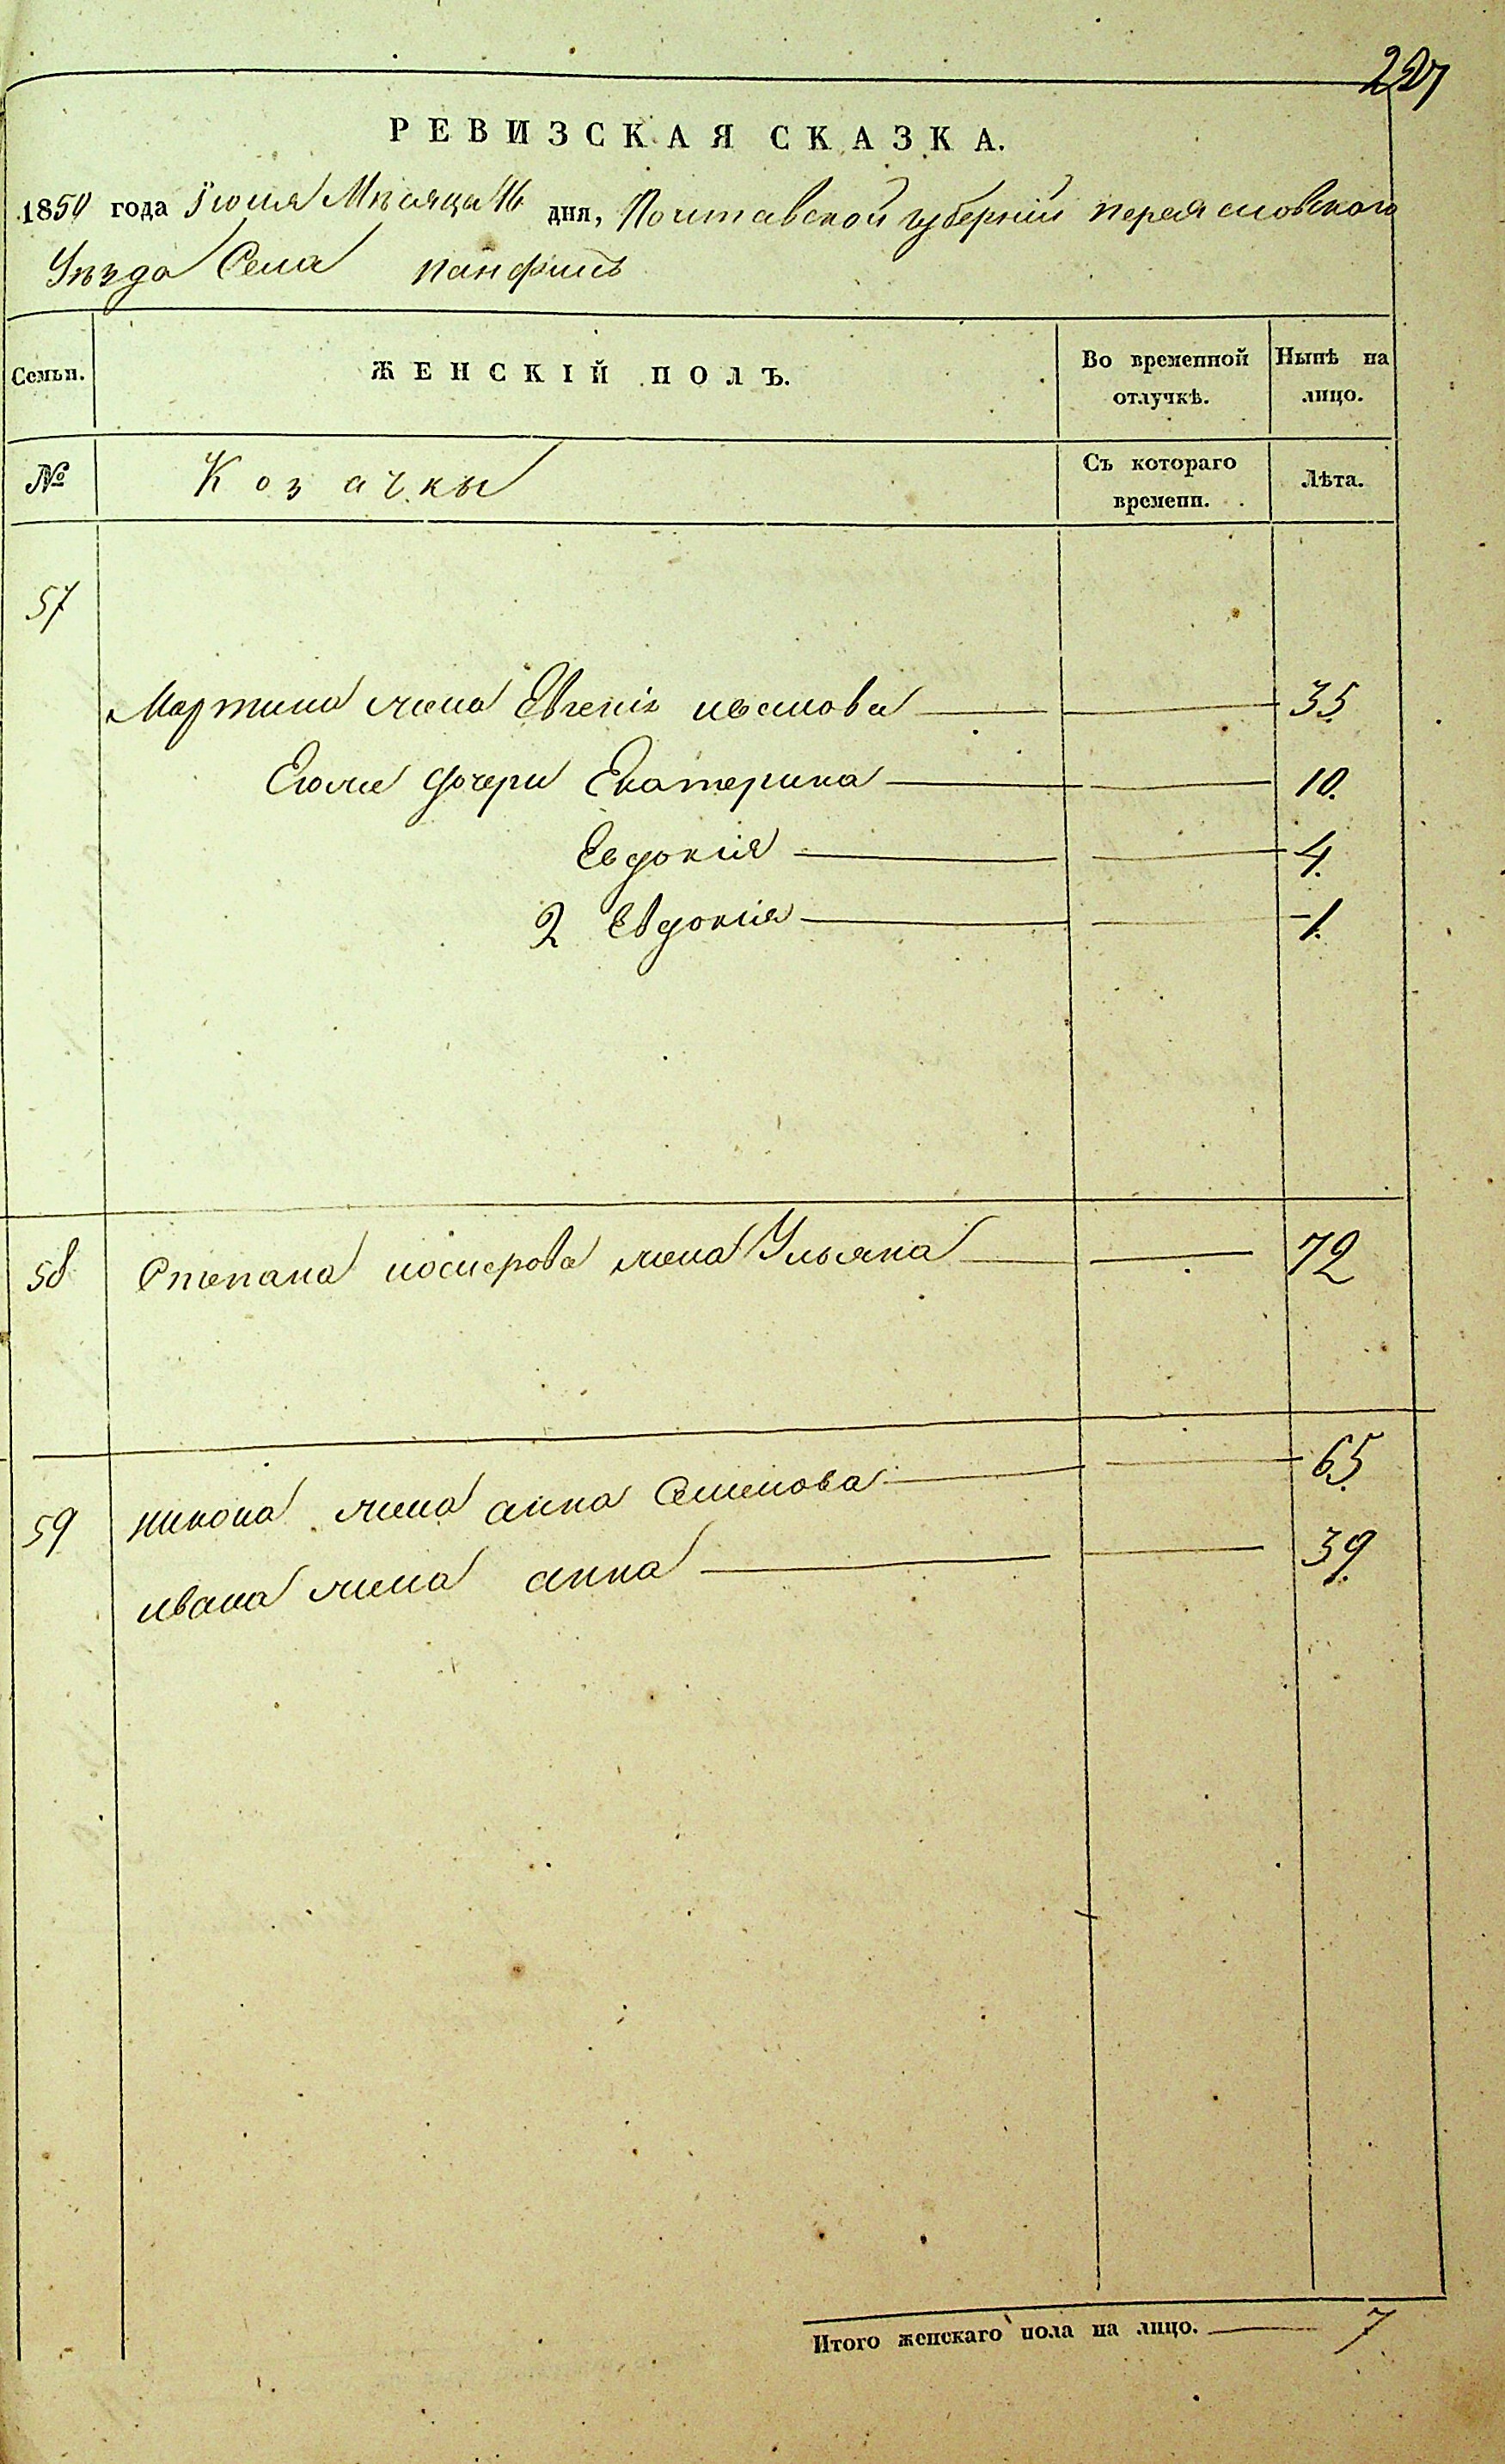 РЕВИЗСКАЯ СКАЗКА.
1850 года Іюля Мѣсяца 16 дня, Полтавской губерніи переясловского
Уѣзда Села панфилъ
Семьи. ЖЕНСКІЙ ПОЛЪ. Во временной отлучкѣ. Нынѣ на лицо.
№ Козачкы Съ котораго времени. Лѣта.
57
Мартина жена Евгенія иванова 35.
Егоже дочери Екатерина 10.
Евдокія 4.
2 Евдокія 1.
58 Степана жена Ульяна 72
59 никона жена анна Семенова 65.
ивана жена анна 39.
Итого женскаго пола на лицо. 7